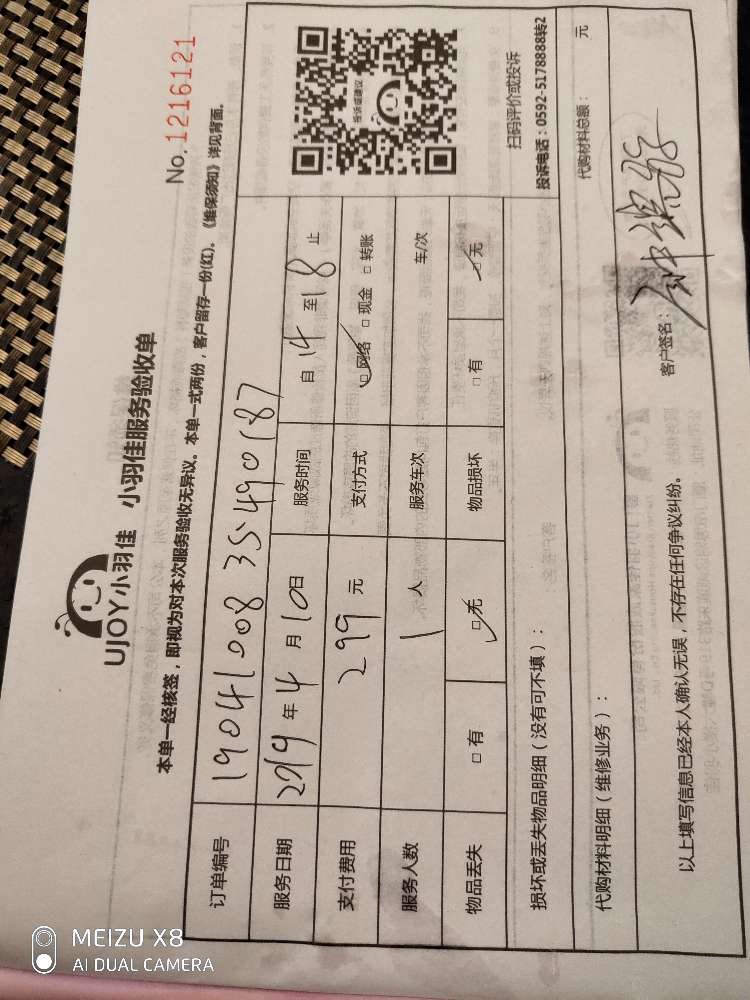 UJOY小羽佳 小羽佳服务验收单
No.1216121
本单一经核签，即视为对本次服务验收无异议。本单一式两份，客户留存一份(红)。《维保须知》详见背面。
订单编号 1904100835490187
服务日期 2019年4月10日 服务时间 自14至18止
支付费用 299元 支付方式 ☑网络 □现金 □转账
服务人数 1人 服务车次 车/次
物品丢失 □有 ☑无 物品损坏 □有 ☑无
投诉或建议
扫码评价或投诉
投诉电话：0592-5178888转2
损坏或丢失物品明细（没有可不填）：
代购材料明细（维修业务）： 代购材料总额： 元
以上填写信息已经本人确认无误，不存在任何争议纠纷。 客户签名：
MEIZU X8
AI DUAL CAMERA